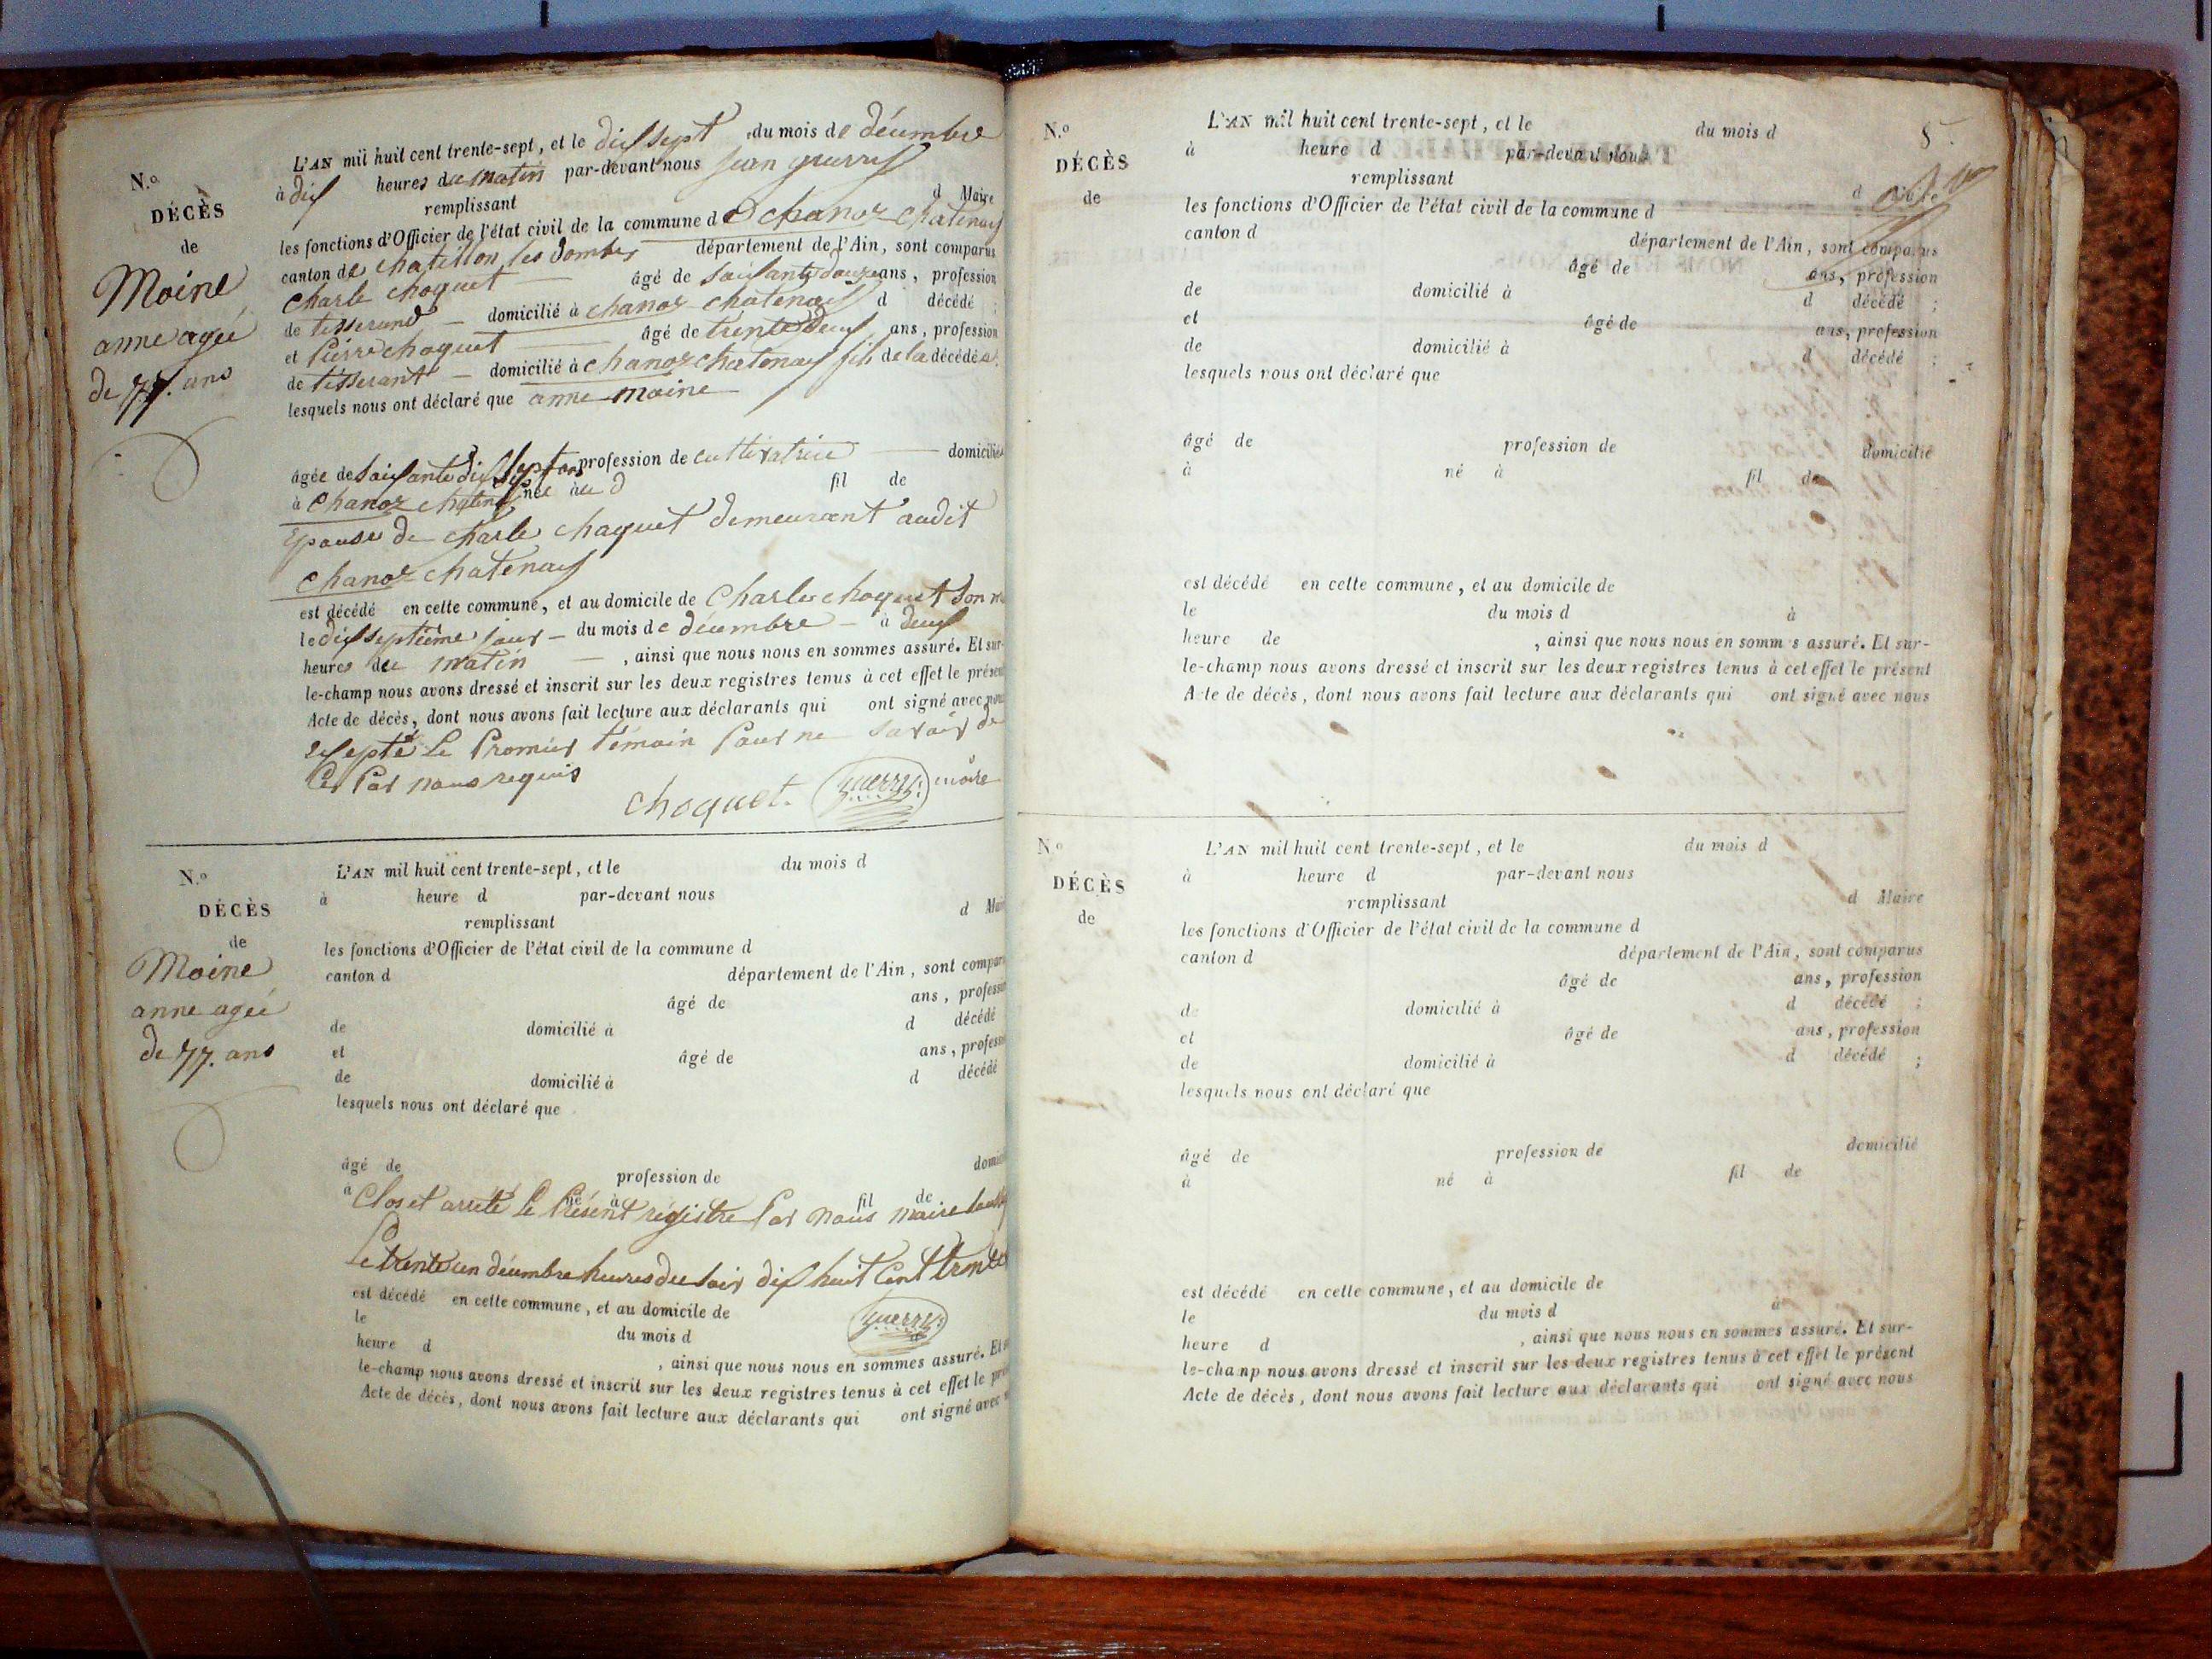 N.o
DÉCÈS
de
Moine
anne agée
de 77. ans
L'AN mil huit cent trente-sept, et le dix sept du mois de décembre
à dix heures du matin par-devant nous jean guerry
remplissant d Maire
les fonctions d'Officier de l'état civil de la commune d chanoz chatenay
canton de chatillon les dombes département de l'Ain, sont comparus
charle choquet âgé de soixante douze ans, profession
de tisserand domicilié à chanoz chatenay d décédé ;
et pierre choquet âgé de trente deux ans, profession
de tisserant domicilié à chanoz chatenay fils de la décédée
lesquels nous ont déclaré que anne moine
âgée de soixante dix sept ans profession de cultivatrice domiciliée
à chanoz chatenay née au d fil de
épouse de charle choquet demeurant audit
chanoz chatenay
est décédé en cette commune, et au domicile de Charle choquet son
le dix septième jour du mois de décembre à deux
heures du matin , ainsi que nous nous en sommes assuré. Et sur-
le-champ nous avons dressé et inscrit sur les deux registres tenus à cet effet le présent
Acte de décès, dont nous avons fait lecture aux déclarants qui ont signé avec nous
exsepté le premier témoin pour ne savoir de
ce par nous requis
choquet. guerry maire
N.o
DÉCÈS
de
Moine
anne agée
de 77. ans
L'AN mil huit cent trente-sept, et le du mois d
à heure d par-devant nous
remplissant d
les fonctions d'Officier de l'état civil de la commune d
canton d département de l'Ain, sont
âgé de ans,
de domicilié à d décédé
et âgé de ans,
de domicilié à d décédé
lesquels nous ont déclaré que
âgé de profession de
à né à fil de
Clos et arreté le présent régistre par nous maire
Le trente un décembre heures du soir dix huit cent trente
est décédé en cette commune, et au domicile de
le du mois d guerry
heure d , ainsi que nous nous en sommes assuré. Et
le-champ nous avons dressé et inscrit sur les deux registres tenus à cet effet le
Acte de décès, dont nous avons fait lecture aux déclarants qui ont signé avec
N.o
DÉCÈS
de
L'AN mil huit cent trente-sept, et le du mois d 8
à heure d par-devant nous
remplissant d
les fonctions d'Officier de l'état civil de la commune d
canton d département de l'Ain, sont comparus
âgé de ans, profession
de domicilié à d décédé ;
et âgé de ans, profession
de domicilié à d décédé ;
lesquels nous ont déclaré que
âgé de profession de domicilié
à né à fil de
est décédé en cette commune, et au domicile de
le du mois d à
heure de , ainsi que nous nous en sommes assuré. Et sur-
le-champ nous avons dressé et inscrit sur les deux registres tenus à cet effet le présent
Acte de décès, dont nous avons fait lecture aux déclarants qui ont signé avec nous
N.o
DÉCÈS
de
L'AN mil huit cent trente-sept, et le du mois d
à heure d par-devant nous
remplissant d Maire
les fonctions d'Officier de l'état civil de la commune d
canton d département de l'Ain, sont comparus
âgé de ans, profession
de domicilié à d décédé ;
et âgé de ans, profession
de domicilié à d décédé ;
lesquels nous ont déclaré que
âgé de profession de domicilié
à né à fil de
est décédé en cette commune, et au domicile de
le du mois d à
heure d , ainsi que nous nous en sommes assuré. Et sur-
le-champ nous avons dressé et inscrit sur les deux registres tenus à cet effet le présent
Acte de décès, dont nous avons fait lecture aux déclarants qui ont signé avec nous